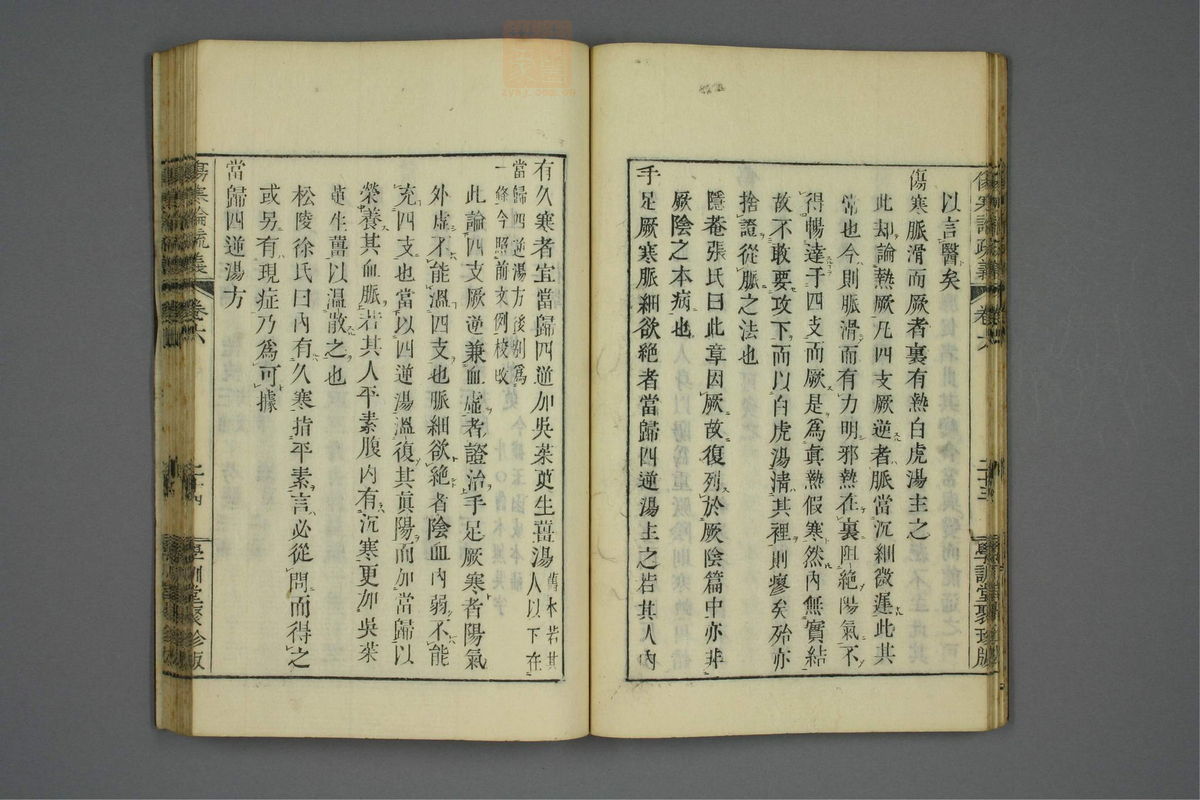 以言醫矣
傷寒脈滑而厥者裏有熱白虎湯主之
此却論熱厥凡四支厥逆者脈當沉細微遲此其
常也今則脈滑而有力明邪熱在裏阻絶陽氣不
得暢達于四支而厥是爲眞熱假寒然內無實結
故不敢要攻下而以白虎湯淸其裡則瘳矣殆亦
捨證從脈之法也
隱菴張氏曰此章因厥故復列於厥陰篇中亦非
厥陰之本病也
手足厥寒脈細欲絶者當歸四逆湯主之若其人內
傷寒論疏義 卷六 二十三 學訓堂聚珍版
有久寒者宜當歸四逆加吳茱萸生薑湯 舊本若其人以下在
當歸四逆湯方後別爲
一條今照前文例校改
此論四支厥逆兼血虛者證治手足厥寒者陽氣
外虛不能溫四支也脈細欲絶者陰血內弱不能
充四支也當以四逆湯溫復其眞陽而加當歸以
榮養其血脈若其人平素腹內有沉寒更加吳茱
萸生薑以溫散之也
松陵徐氏曰內有久寒指平素言必從問而得之
或另有現症乃爲可據
當歸四逆湯方
傷寒論疏義 卷六 二十四 學訓堂聚珍版